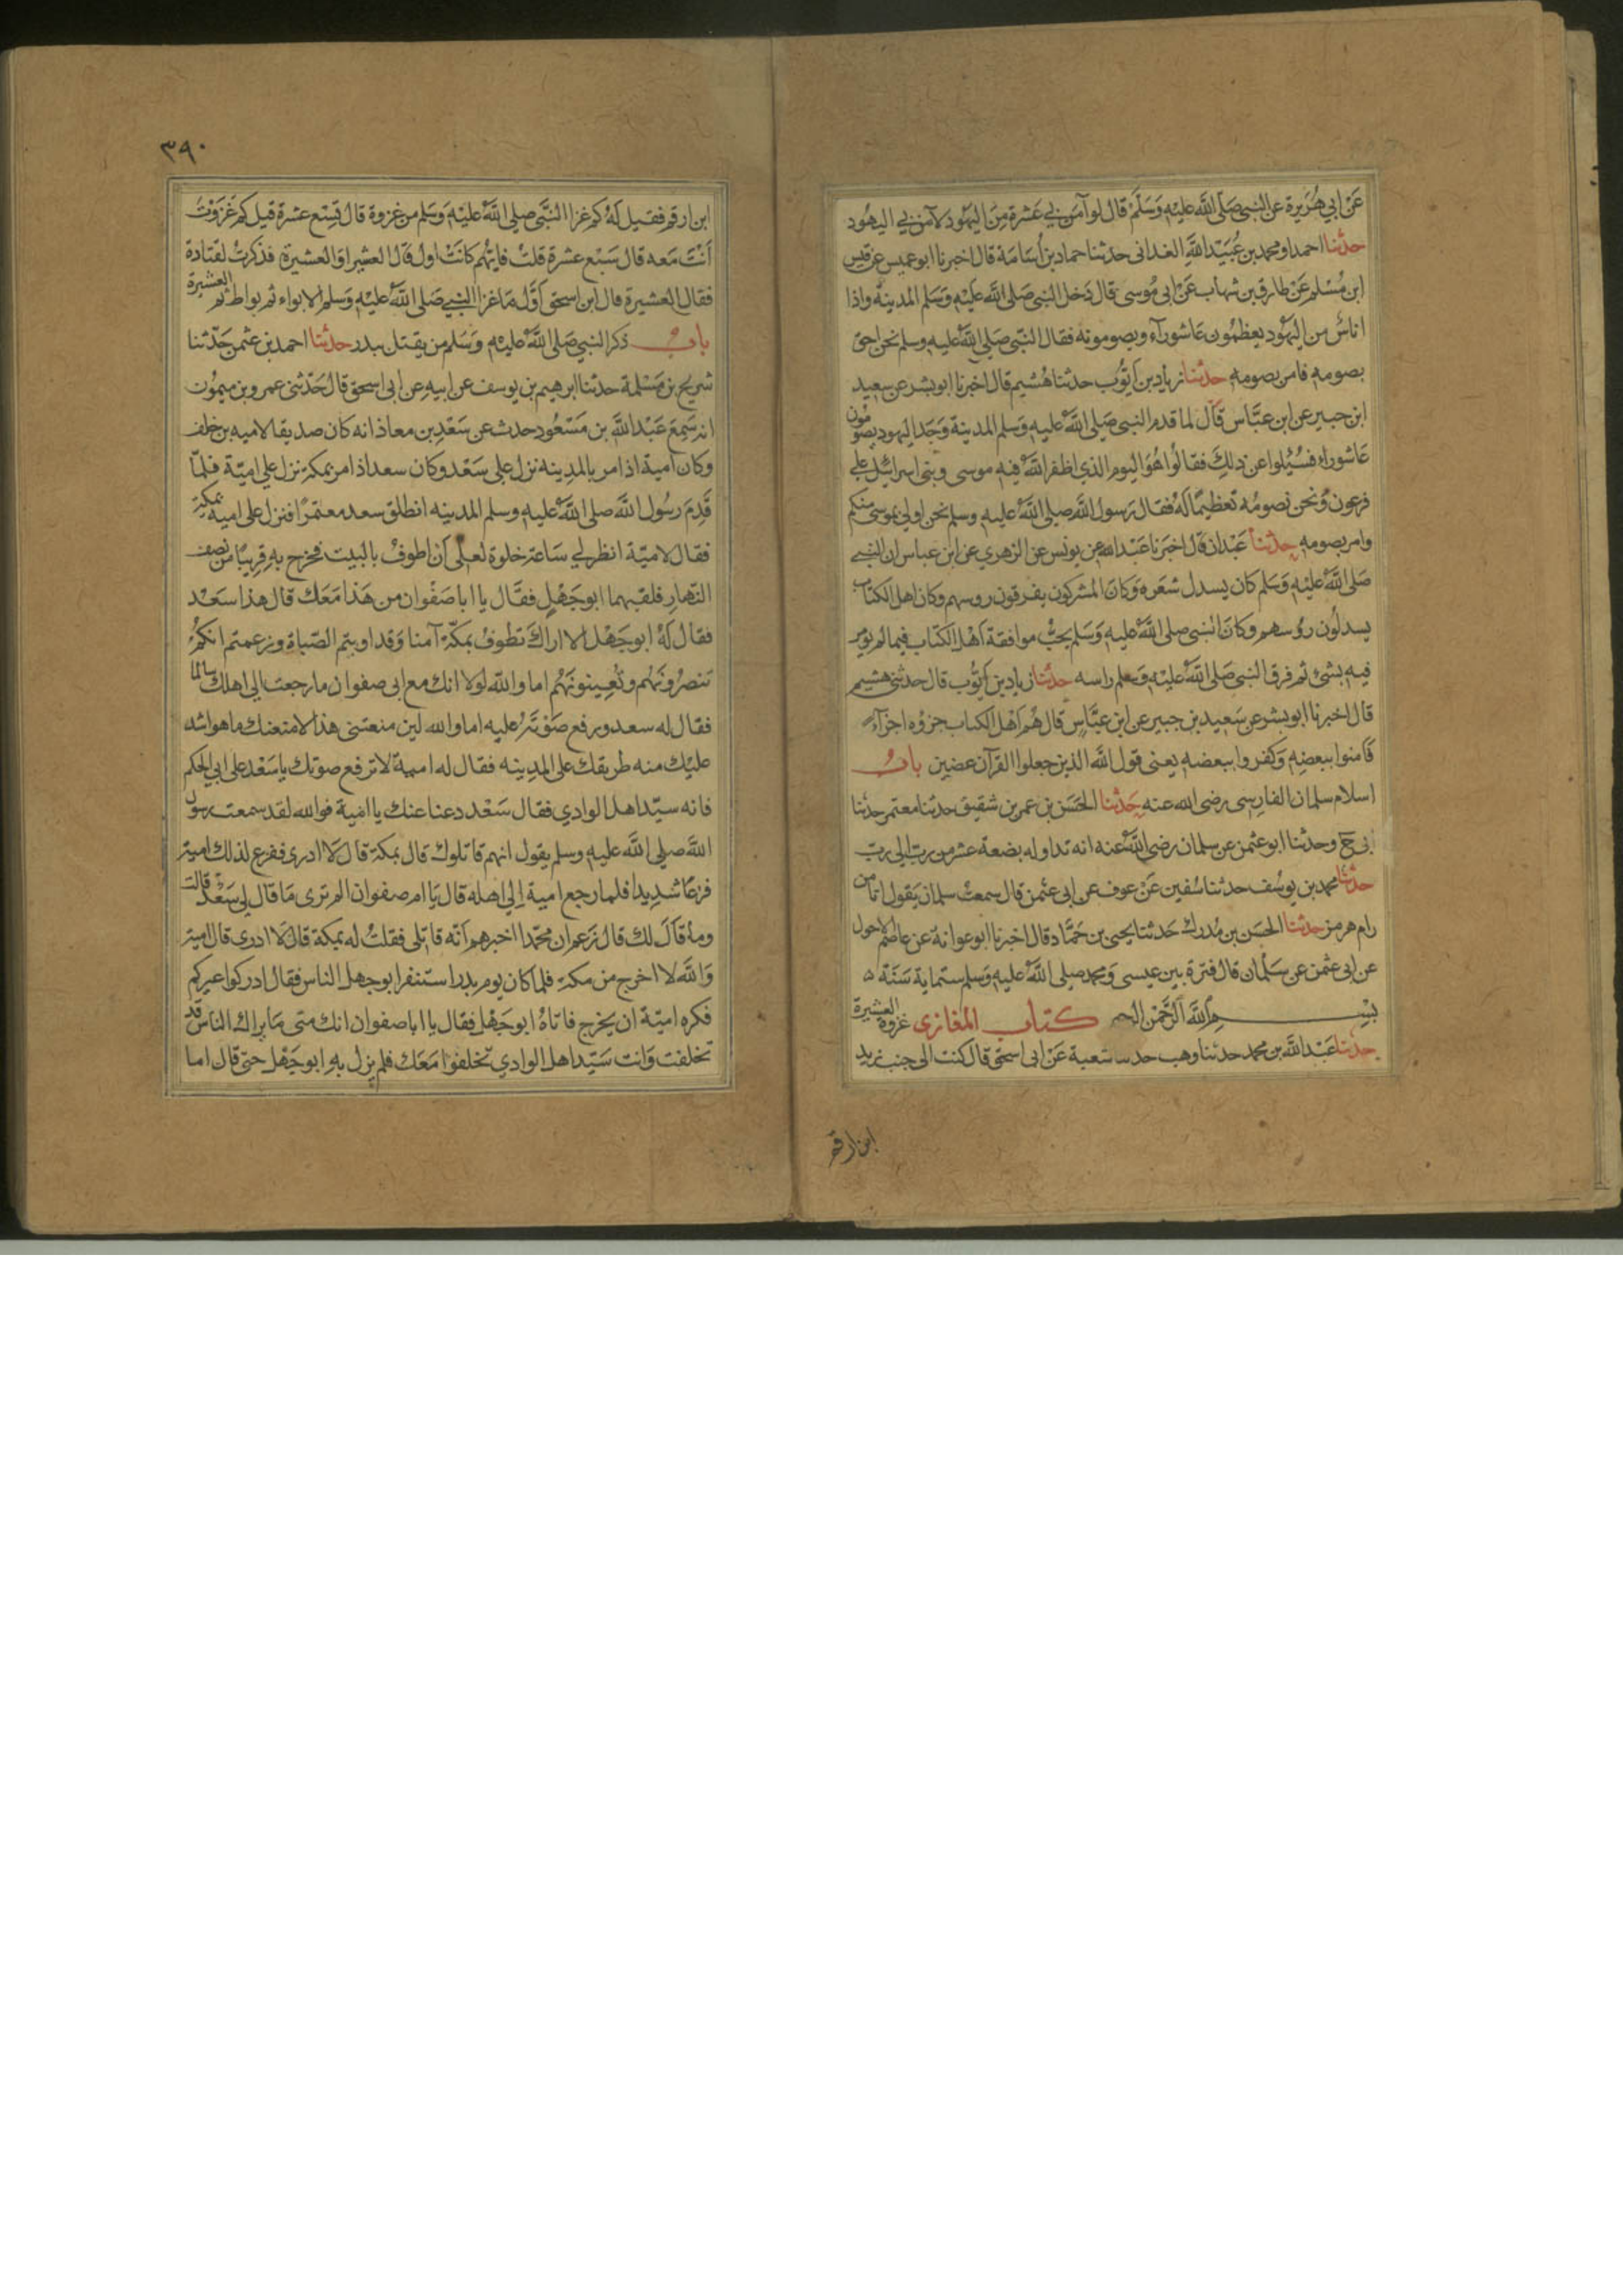 عن ابي هريرة عن النبي صلى الله عليه وسلم قال لو آمن بي عشرة من اليهود لآمن بي اليهود
حدثنا احمد او محمد بن عبيد الله الغداني حدثنا حماد بن اسامة قال اخبرنا ابو عميس عن قيس
ابن مسلم عن طارق بن شهاب عن ابي موسى قال دخل النبي صلى الله عليه وسلم المدينة واذا
اناس من اليهود يعظمون عاشوراء ويصومونه فقال النبي صلى الله عليه وسلم نحن احق
بصومه فامر بصومه حدثنا زياد بن ايوب حدثنا هشيم قال اخبرنا ابو بشر عن سعيد
ابن جبير عن ابن عباس قال لما قدم النبي صلى الله عليه وسلم المدينة وجد اليهود يصومون
عاشوراء فسئلوا عن ذلك فقالوا هو اليوم الذي اظفر الله فيه موسى وبني اسرائيل على
فرعون ونحن نصومه تعظيما له فقال رسول الله صلى الله عليه وسلم نحن اولى بموسى منكم
وامر بصومه حدثنا عبدان قال اخبرنا عبد الله عن يونس عن الزهري عن ابن عباس ان النبي
صلى الله عليه وسلم كان يسدل شعره وكان المشركون يفرقون روسهم وكان اهل الكتاب
يسدلون رؤسهم وكان النبي صلى الله عليه وسلم يحب موافقة اهل الكتاب فيما لم يؤمر
فيه بشئ ثم فرق النبي صلى الله عليه وسلم راسه حدثنا زياد بن ايوب قال حدثني هشيم
قال اخبرنا ابو بشر عن سعيد بن جبير عن ابن عباس قال هم اهل الكتاب جزؤه اجزآء
فآمنوا ببعضه وكفروا ببعضه يعني قول الله الذين جعلوا القرآن عضين باب
اسلام سلمان الفارسي رضي الله عنه حدثنا الحسن بن عمر بن شقيق حدثنا معتمر حدثنا
ابي ح وحدثنا ابو عثمن عن سلمان رضي الله عنه انه تداوله بضعة عشر من رب الى رب
حدثنا محمد بن يوسف حدثنا سفين عن عوف عن ابي عثمن قال سمعت سلمان يقول انا من
رام هرمز حدثنا الحسن بن مدرك حدثنا يحيى بن حماد قال اخبرنا ابو عوانة عن عاصم الاحول
عن ابي عثمن عن سلمان قال فترة بين عيسى ومحمد صلى الله عليه وسلم ستماية سنة ه
بسم الله الرحمن الرحيم كتاب المغازي غزوة العشيرة
حدثنا عبد الله بن محمد حدثنا وهب حدثنا شعبة عن ابي اسحق قال كنت الى جنب زيد
ابن ارقم
٣٩٠
ابن ارقم فقيل له كم غزا النبي صلى الله عليه وسلم من غزوة قال تسع عشرة قيل كم غزوت
انت معه قال سبع عشرة قلت فايهم كانت اول قال العشيراو العشيرة فذكرت لقتادة
فقال العشيرة قال ابن اسحق اول ما غزا النبي صلى الله عليه وسلم الابواء ثم بواط ثم العشيرة
باب ذكر النبي صلى الله عليه وسلم من يقتل ببدر حدثنا احمد بن عثمن حدثنا
شريح بن مسلمة حدثنا ابرهيم بن يوسف عن ابيه عن ابي اسحق قال حدثني عمرو بن ميمون
انه سمع عبد الله بن مسعود حدث عن سعد بن معاذ انه كان صديقا لاميه بن خلف
وكان امية اذا مر بالمدينه نزل على سعد وكان سعد اذا مر بمكة نزل على امية فلما
قدم رسول الله صلى الله عليه وسلم المدينه انطلق سعد معتمرا فنزل على امية بمكة
فقال لامية انظر لي ساعة خلوة لعلي ان اطوف بالبيت فخرج به قريبا من نصف
النهار فلقيهما ابو جهل فقال يا ابا صفوان من هذا معك قال هذا سعد
فقال له ابو جهل الا اراك تطوف بمكة آمنا وقد اويتم الصباة وزعمتم انكم
تنصرونهم وتعينونهم اما والله لولا انك مع ابي صفوان ما رجعت الى اهلك سالما
فقال له سعد ورفع صوته عليه اما والله لين منعتني هذا لامنعنك ما هو اشد
عليك منه طريقك على المدينه فقال له امية لا ترفع صوتك يا سعد على ابي الحكم
فانه سيد اهل الوادي فقال سعد دعنا عنك يا امية فوالله لقد سمعت رسول
الله صلى الله عليه وسلم يقول انهم قاتلوك قال بمكة قال لا ادري ففزع لذلك امية
فزعا شديدا فلما رجع امية الى اهله قال يا ام صفوان الم ترى ما قال لي سعد قالت
وما قال لك قال زعم ان محمدا اخبرهم انه قاتلى فقلت له بمكة قال لا ادري قال امية
والله لا اخرج من مكة فلما كان يوم بدر استنفر ابو جهل الناس فقال ادركوا عيركم
فكره امية ان يخرج فاتاه ابو جهل فقال يا ابا صفوان انك متى ما يراك الناس قد
تخلفت وانت سيد اهل الوادي تخلفوا معك فلم يزل به ابو جهل حتى قال اما